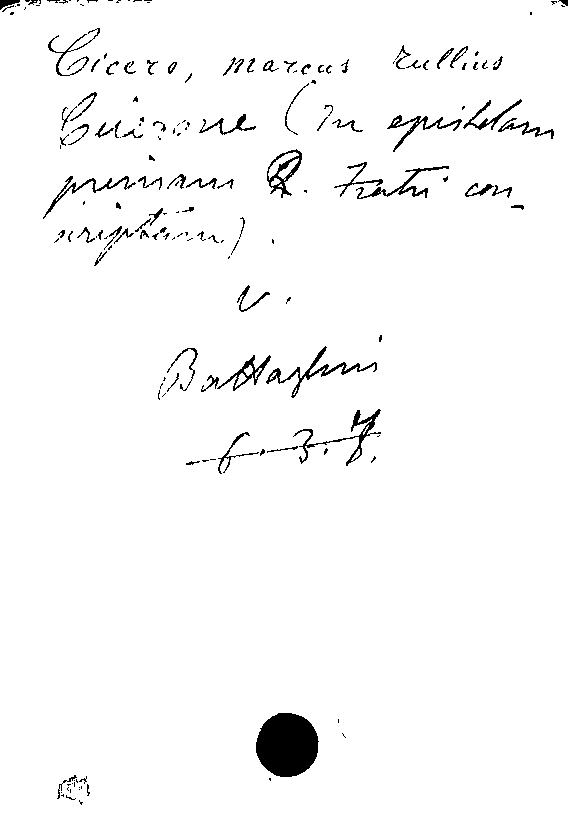 Cicero, Marcus Tullius
Cicerone (In epistolam
primam Q. Fratri con_
scriptam).
V.
Battaglini
6. 3. 7.